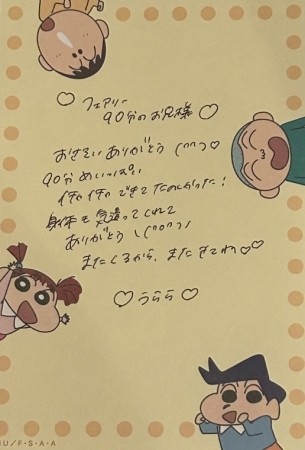 ♡ フェアリー
90分のお兄様 ♡
おさそい ありがとう (∩∩)♡
90分 めいっぱい
イチャイチャ できて たのしかった!
身体も 気遣ってくれて
ありがとう (∩∩)
またくるから、またきてね♡♡
♡ うらら ♡
U/F・S・A・A